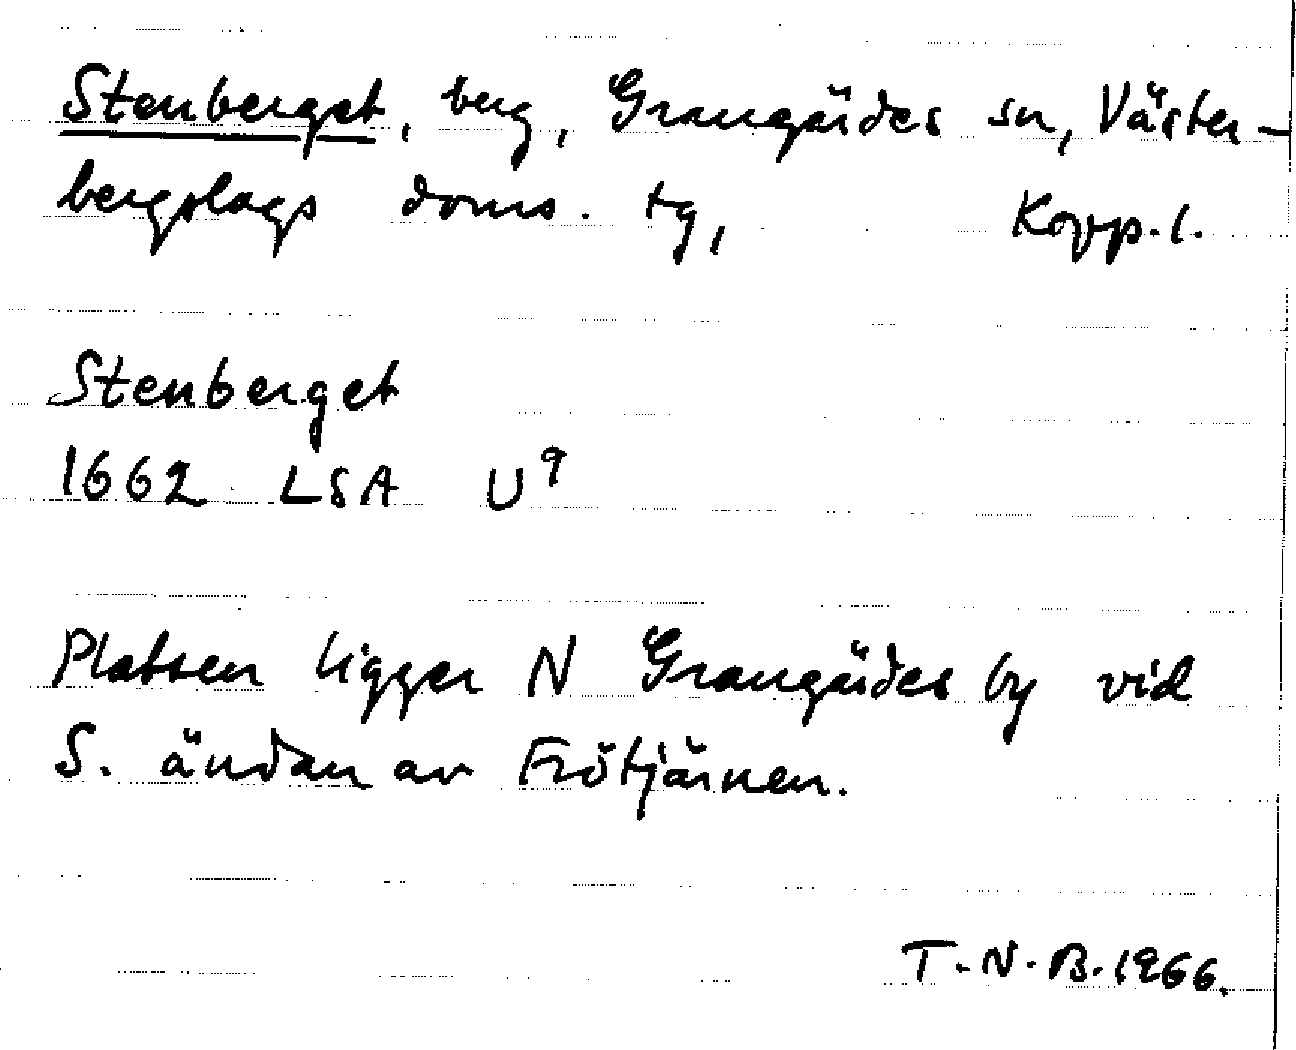 Stenberget, berg, Grangärdes sn, Väster-
bergslags doms. tg, Kopp. l.
Stenberget
1662 LSA U⁹
Platsen ligger N Grangärdes by vid
S. ändan av Frötjärnen.
T.N.B. 1966.